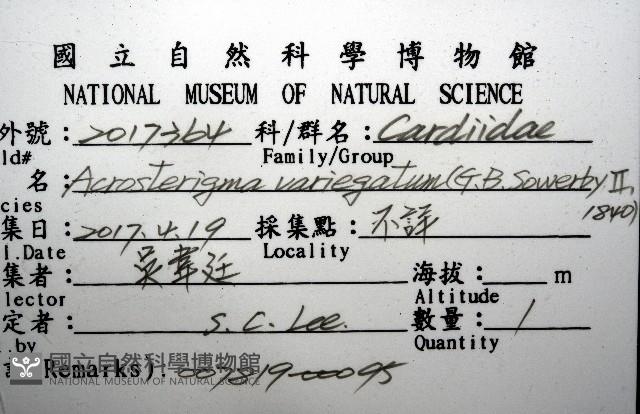 國立自然科學博物館
NATIONAL MUSEUM OF NATURAL SCIENCE
外號：2017364 科/群名：Cardiidae
ld# Family/Group
名：Acrosterigma variegatum (G.B. Sowerby II, 1840)
cies
集日：2017.4.19 採集點：不詳
l.Date Locality
集者：吳韋廷 海拔： m
lector Altitude
定者：S. C. Lee. 數量：1
.by Quantity
國立自然科學博物館
NATIONAL MUSEUM OF NATURAL SCIENCE
Remarks): 007819-00095